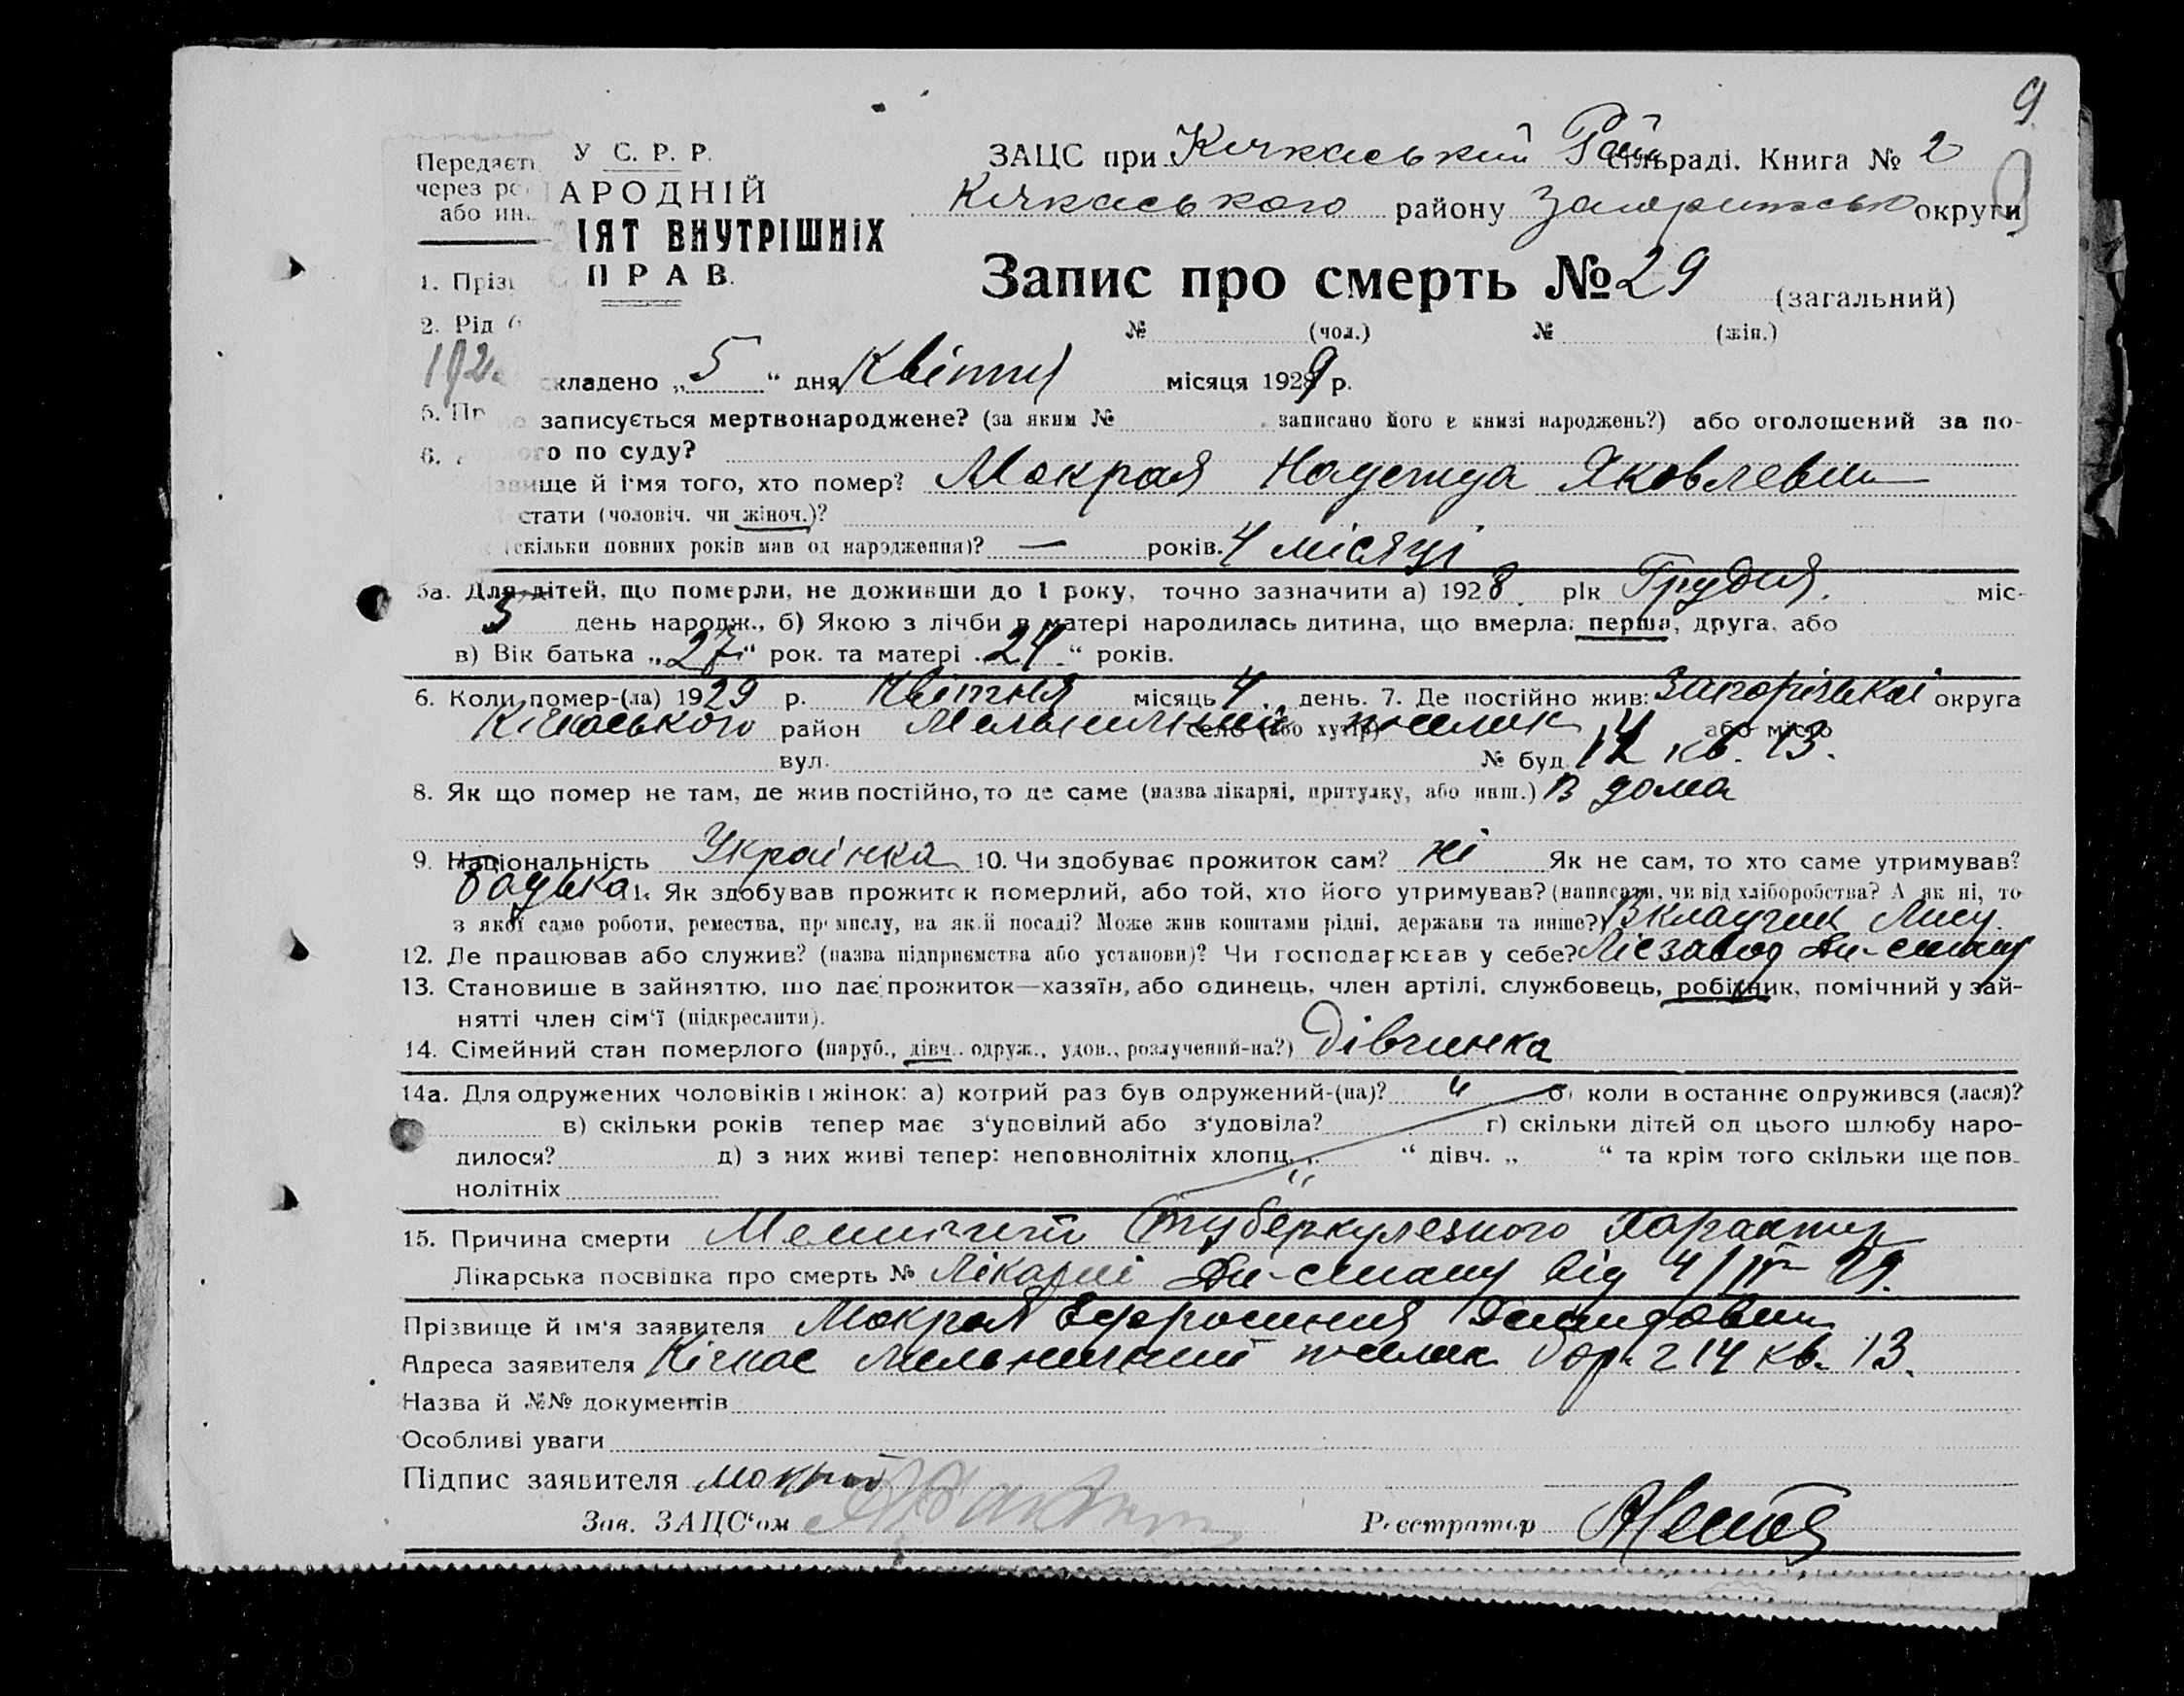 9
Передаєть
через ре
або ин.
У С. Р. Р.
АРОДНІЙ
ІЯТ ВНУТРІШНІХ
ПРАВ.
ЗАЦС при Кічкаський Рай сільраді. Книга № 2
Кічкаського району Запоризсько округи
Запис про смерть № 29 (загальний)
№ (чол.) № (жін.)
1. Прізв
2. Рід
складено „5“ дня Квітня місяця 1929 р.
записується мертвонароджене? (за яким № записано його в книзі народжень?) або оголошений за по-
го по суду?
ище й ім'я того, хто помер? Мокрая Надежда Яковлевна
стати (чоловіч. чи жіноч.)?
(скільки повних років мав од народження)? — років. 4 місяці
5а. Для дітей, що померли, не доживши до 1 року, точно зазначити а) 1928 рік Грудня. міс-
5 день народж., б) Якою з лічби в матері народилась дитина, що вмерла: перша, друга, або
в) Вік батька „27“ рок. та матері „24“ років.
6. Коли помер-(ла) 1929 р. Квітня місяць 4 день. 7. Де постійно жив: Запорізької округа
Кічкаського район Мельничний село (або хутір) поселок або місто
вул. № буд. кв. 13.
8. Як що помер не там, де жив постійно, то де саме (назва лікарні, притулку, або инш.) В дома
9. Національність Українка 10. Чи здобуває прожиток сам? Ні Як не сам, то хто саме утримував?
батька 11. Як здобував прожиток померлий, або той, хто його утримував? (написати, чи від хліборобства? А як ні, то
з якої саме роботи, ремества, промислу, на якій посаді? Може жив коштами рідні, держави та инше?) Вкладчик Лісу.
12. Де працював або служив? (назва підприємства або установи)? Чи господарював у себе? Лісзавод Дн-стану
13. Становище в зайняттю, що дає прожиток—хазяїн, або одинець, член артілі, службовець, робітник, помічний у зай-
нятті член сім'ї (підкреслити).
14. Сімейний стан померлого (паруб., дівч., одруж., удов., розлучений-на?) Дівчинка
14а. Для одружених чоловіків і жінок: а) котрий раз був одружений-(на)? б) коли востаннє одружився (лася)?
в) скільки років тепер має з'удовілий або з'удовіла? г) скільки дітей од цього шлюбу наро-
дилося? д) з них живі тепер: неповнолітніх хлопц. „ “ дівч. „ “ та крім того скільки ще пов-
нолітніх
15. Причина смерти Менінгит туберкулезного характер
Лікарська посвідка про смерть № Лікарні Дн-стану від 4/IV 29.
Прізвище й ім'я заявителя Мокрая Ефросиния
Адреса заявителя Кічкас Мельничний поселок 14 кв. 13.
Назва й №№ документів
Особливі уваги
Підпис заявителя Мокрая
Зав. ЗАЦС'ом Реєстратор